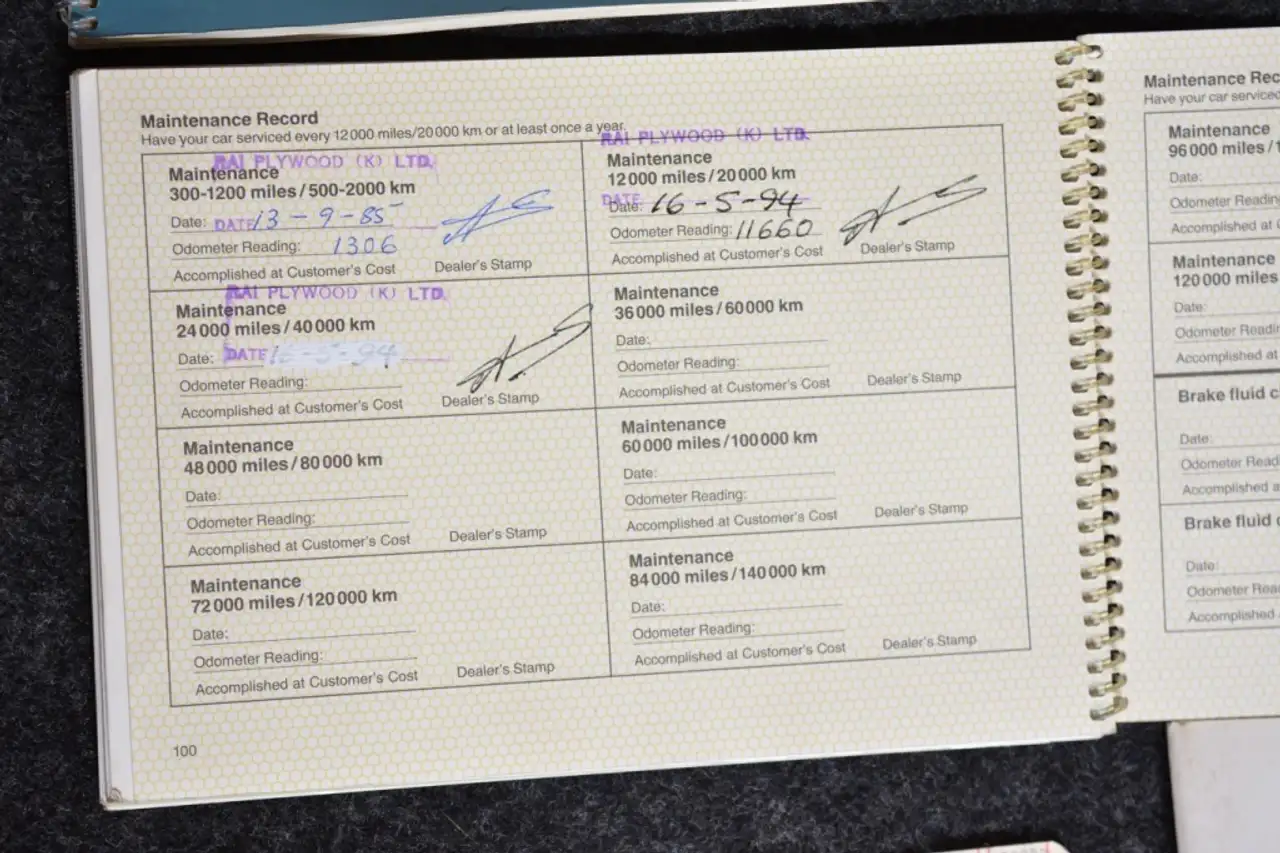 Maintenance Record
Have your car serviced every 12 000 miles/20 000 km or at least once a year.
RAI PLYWOOD (K) LTD.
Maintenance
300-1200 miles / 500-2000 km
Date: DATE 13 - 9 - 85
Odometer Reading: 1306
Accomplished at Customer's Cost Dealer's Stamp
RAI PLYWOOD (K) LTD.
Maintenance
12 000 miles / 20 000 km
DATE
Date: 16 - 5 - 94
Odometer Reading: 11660
Accomplished at Customer's Cost Dealer's Stamp
RAI PLYWOOD (K) LTD.
Maintenance
24 000 miles / 40 000 km
Date: DATE 16-5-94
Odometer Reading:
Accomplished at Customer's Cost Dealer's Stamp
Maintenance
36 000 miles / 60 000 km
Date:
Odometer Reading:
Accomplished at Customer's Cost Dealer's Stamp
Maintenance
48 000 miles / 80 000 km
Date:
Odometer Reading:
Accomplished at Customer's Cost Dealer's Stamp
Maintenance
60 000 miles / 100 000 km
Date:
Odometer Reading:
Accomplished at Customer's Cost Dealer's Stamp
Maintenance
72 000 miles / 120 000 km
Date:
Odometer Reading:
Accomplished at Customer's Cost Dealer's Stamp
Maintenance
84 000 miles / 140 000 km
Date:
Odometer Reading:
Accomplished at Customer's Cost Dealer's Stamp
100
Maintenance Rec
Have your car serviced
Maintenance
96 000 miles / 1
Date:
Odometer Reading
Accomplished at
Maintenance
120 000 miles
Date:
Odometer Readin
Accomplished at
Brake fluid c
Date:
Odometer Read
Accomplished a
Brake fluid
Date:
Odometer Rea
Accomplished